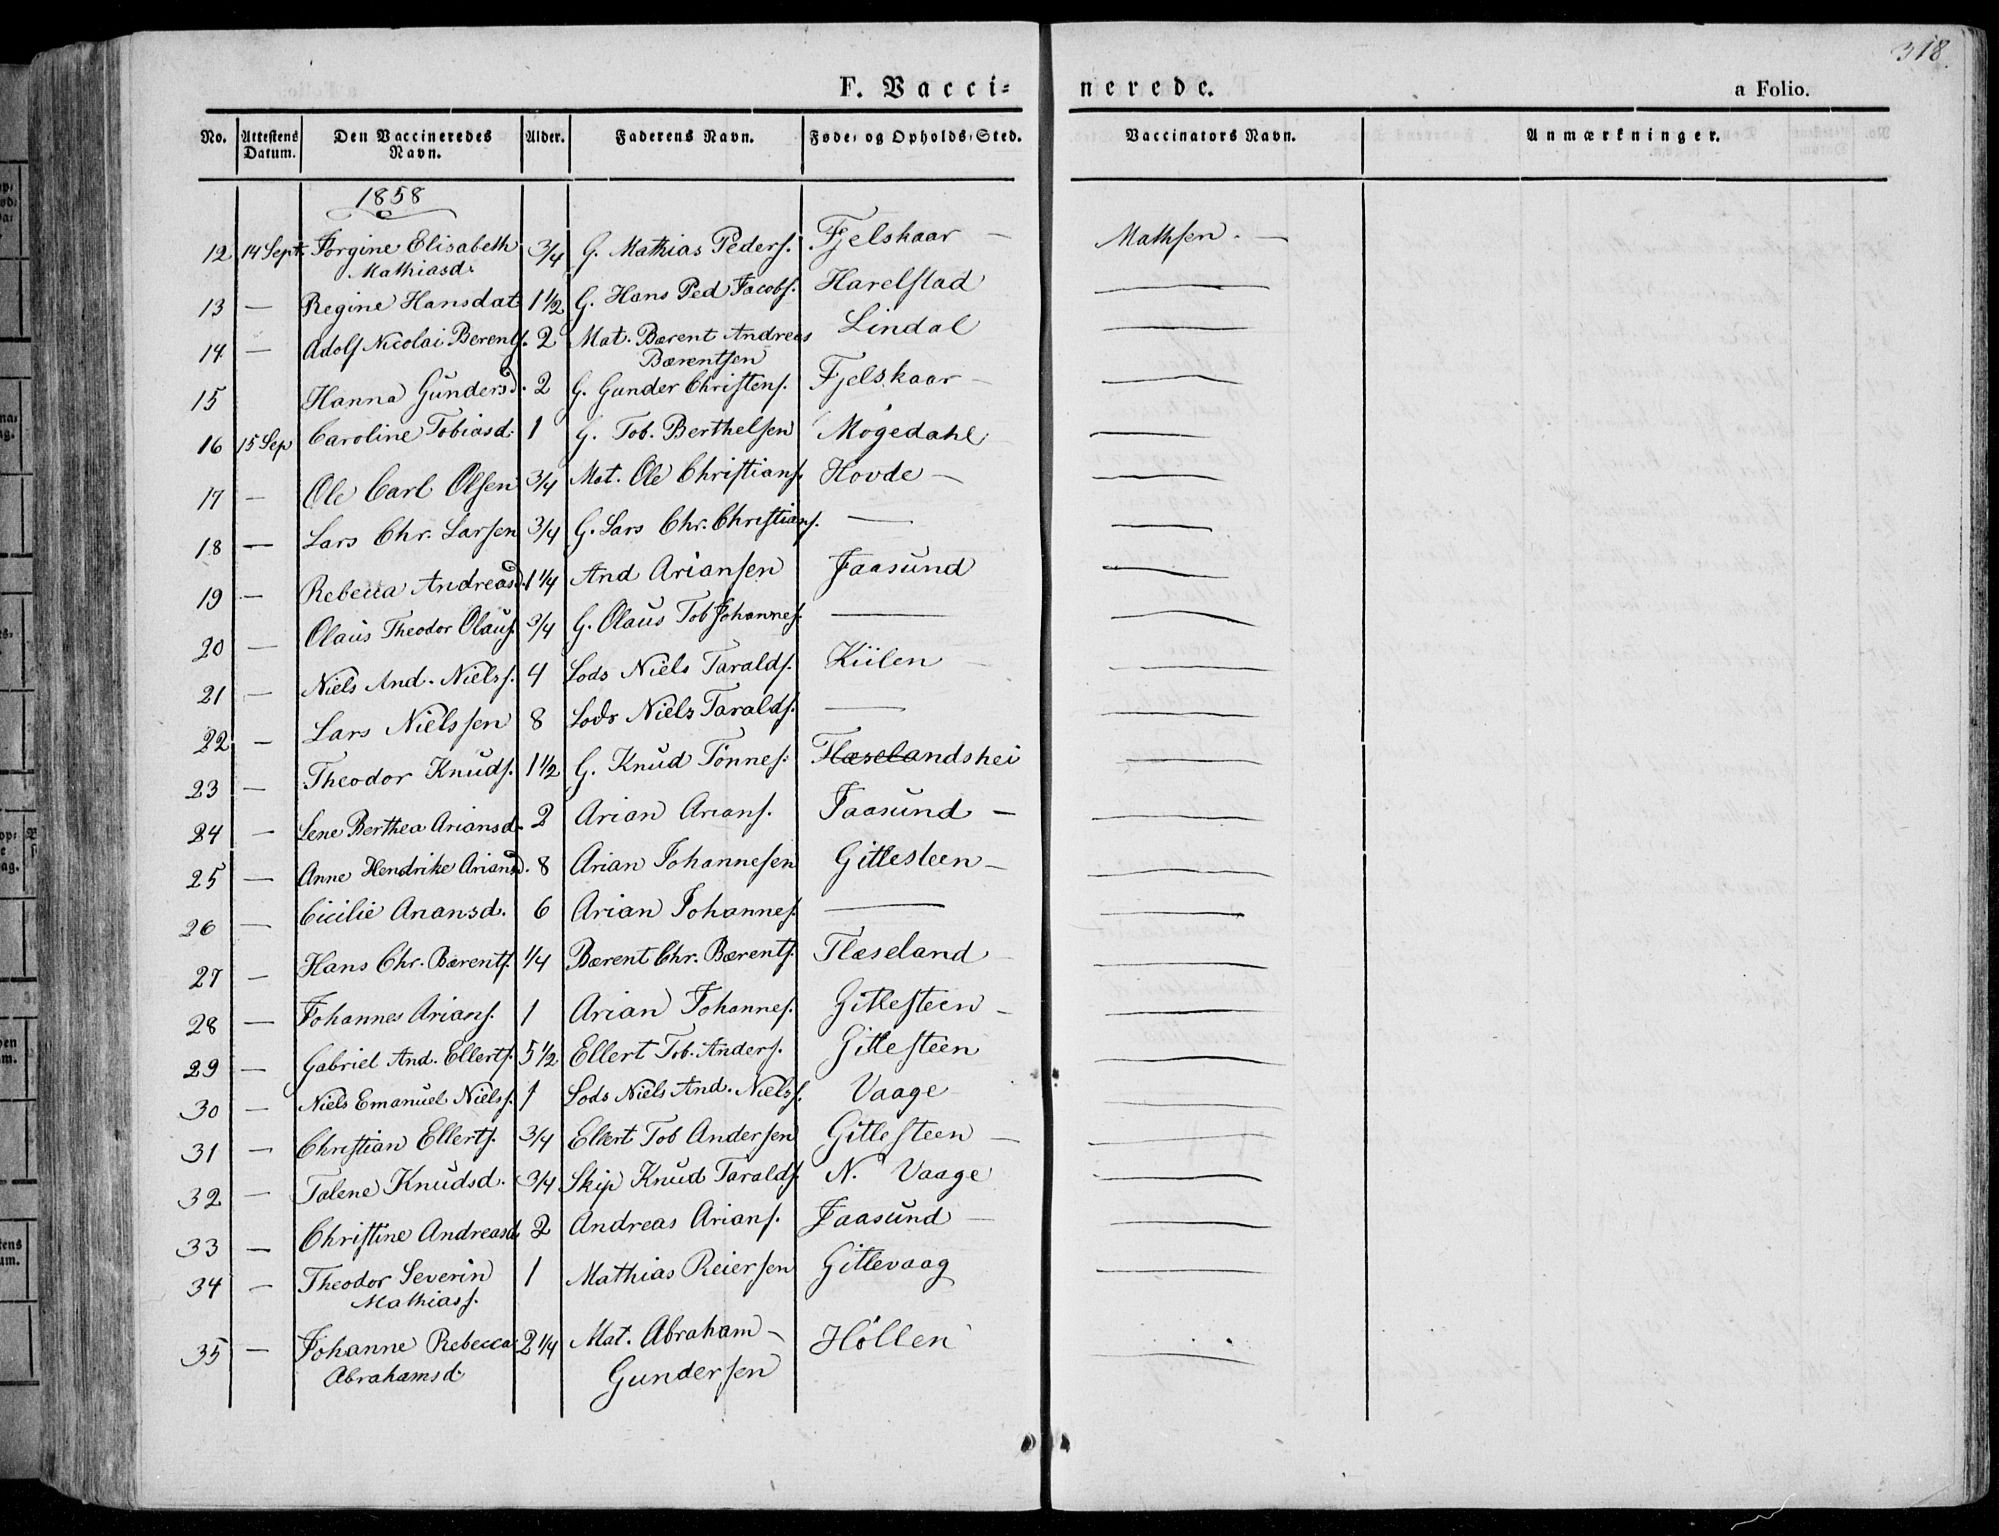 318.
F. Vacci= nerede. a Folio.
No. Attestens Datum. Den Vaccineredes Navn. Alder. Faderens Navn. Føde- og Opholds-Sted. Vaccinators Navn. Anmærkninger.
1858
12 14 Sept. Jorgine Elisabeth 3/4 G. Mathias Peders. Fjelskaar — Mathsen. —
Mathiasd.
13 — Regine Hansdat 1 1/2 G. Hans Ped Jacobs. Harelstad —
14 — Adolf Nicolai Berents. 2 Mat. Bærent Andreas Lindal —
Bærentsen
15 Hanna Gundersd. 2 G. Gunder Christens. Fjelskaar — —
16 15 Sep Caroline Tobiasd. 1 G. Tob. Berthelsen Mögedahl —
17 — Ole Carl Olsen 3/4 Mat. Ole Christians. Hovde — —
18 — Lars Chr. Larsen 3/4 G. Lars Chr. Christians. — —
19 — Rebecca Andreasd. 1 1/4 And Ariansen Faasund —
20 — Olaus Theodor Olaus. 3/4 G. Olaus Tob Johannes. — —
21 — Niels And. Nielss. 4 Lods Niels Taralds. Kiilen — —
22 — Lars Nielssen 8 Lods Niels Taralds. — —
23 — Theodor Knuds. 1 1/2 G. Knud Tönnes. Flæselandshei —
24 — Lene Berthea Ariansd. 2 Arian Arians. Faasund — —
25 — Anne Hendrike Ariansd. 8 Arian Johannesen Gittesteen — —
26 — Cicilie Ariansd. 6 Arian Johannes. — —
27 — Hans Chr. Bærents. 1/4 Bærent Chr. Bærents. Flæseland —
28 — Johannes Arians. 1 Arian Johannes. Gittesteen — —
29 — Gabriel And. Ellerts. 5 1/2 Ellert Tob. Anders. Gittesteen —
30 — Niels Emanuel Nielss. 1 Lods Niels And. Nielss. Vaage —
31 — Christian Ellerts. 3/4 Ellert Tob Andersen Gittesteen — —
32 — Talene Knudsd. 3/4 Skip Knud Taralds. N. Vaage —
33 — Christine Andreasd. 2 Andreas Arians. Faasund — —
34 — Theodor Severin 1 Mathias Reiersen Gittevaag —
Mathiass.
35 — Johanne Rebecca 2 1/4 Mat. Abraham — Höllen —
Abrahamsd. Gundersen